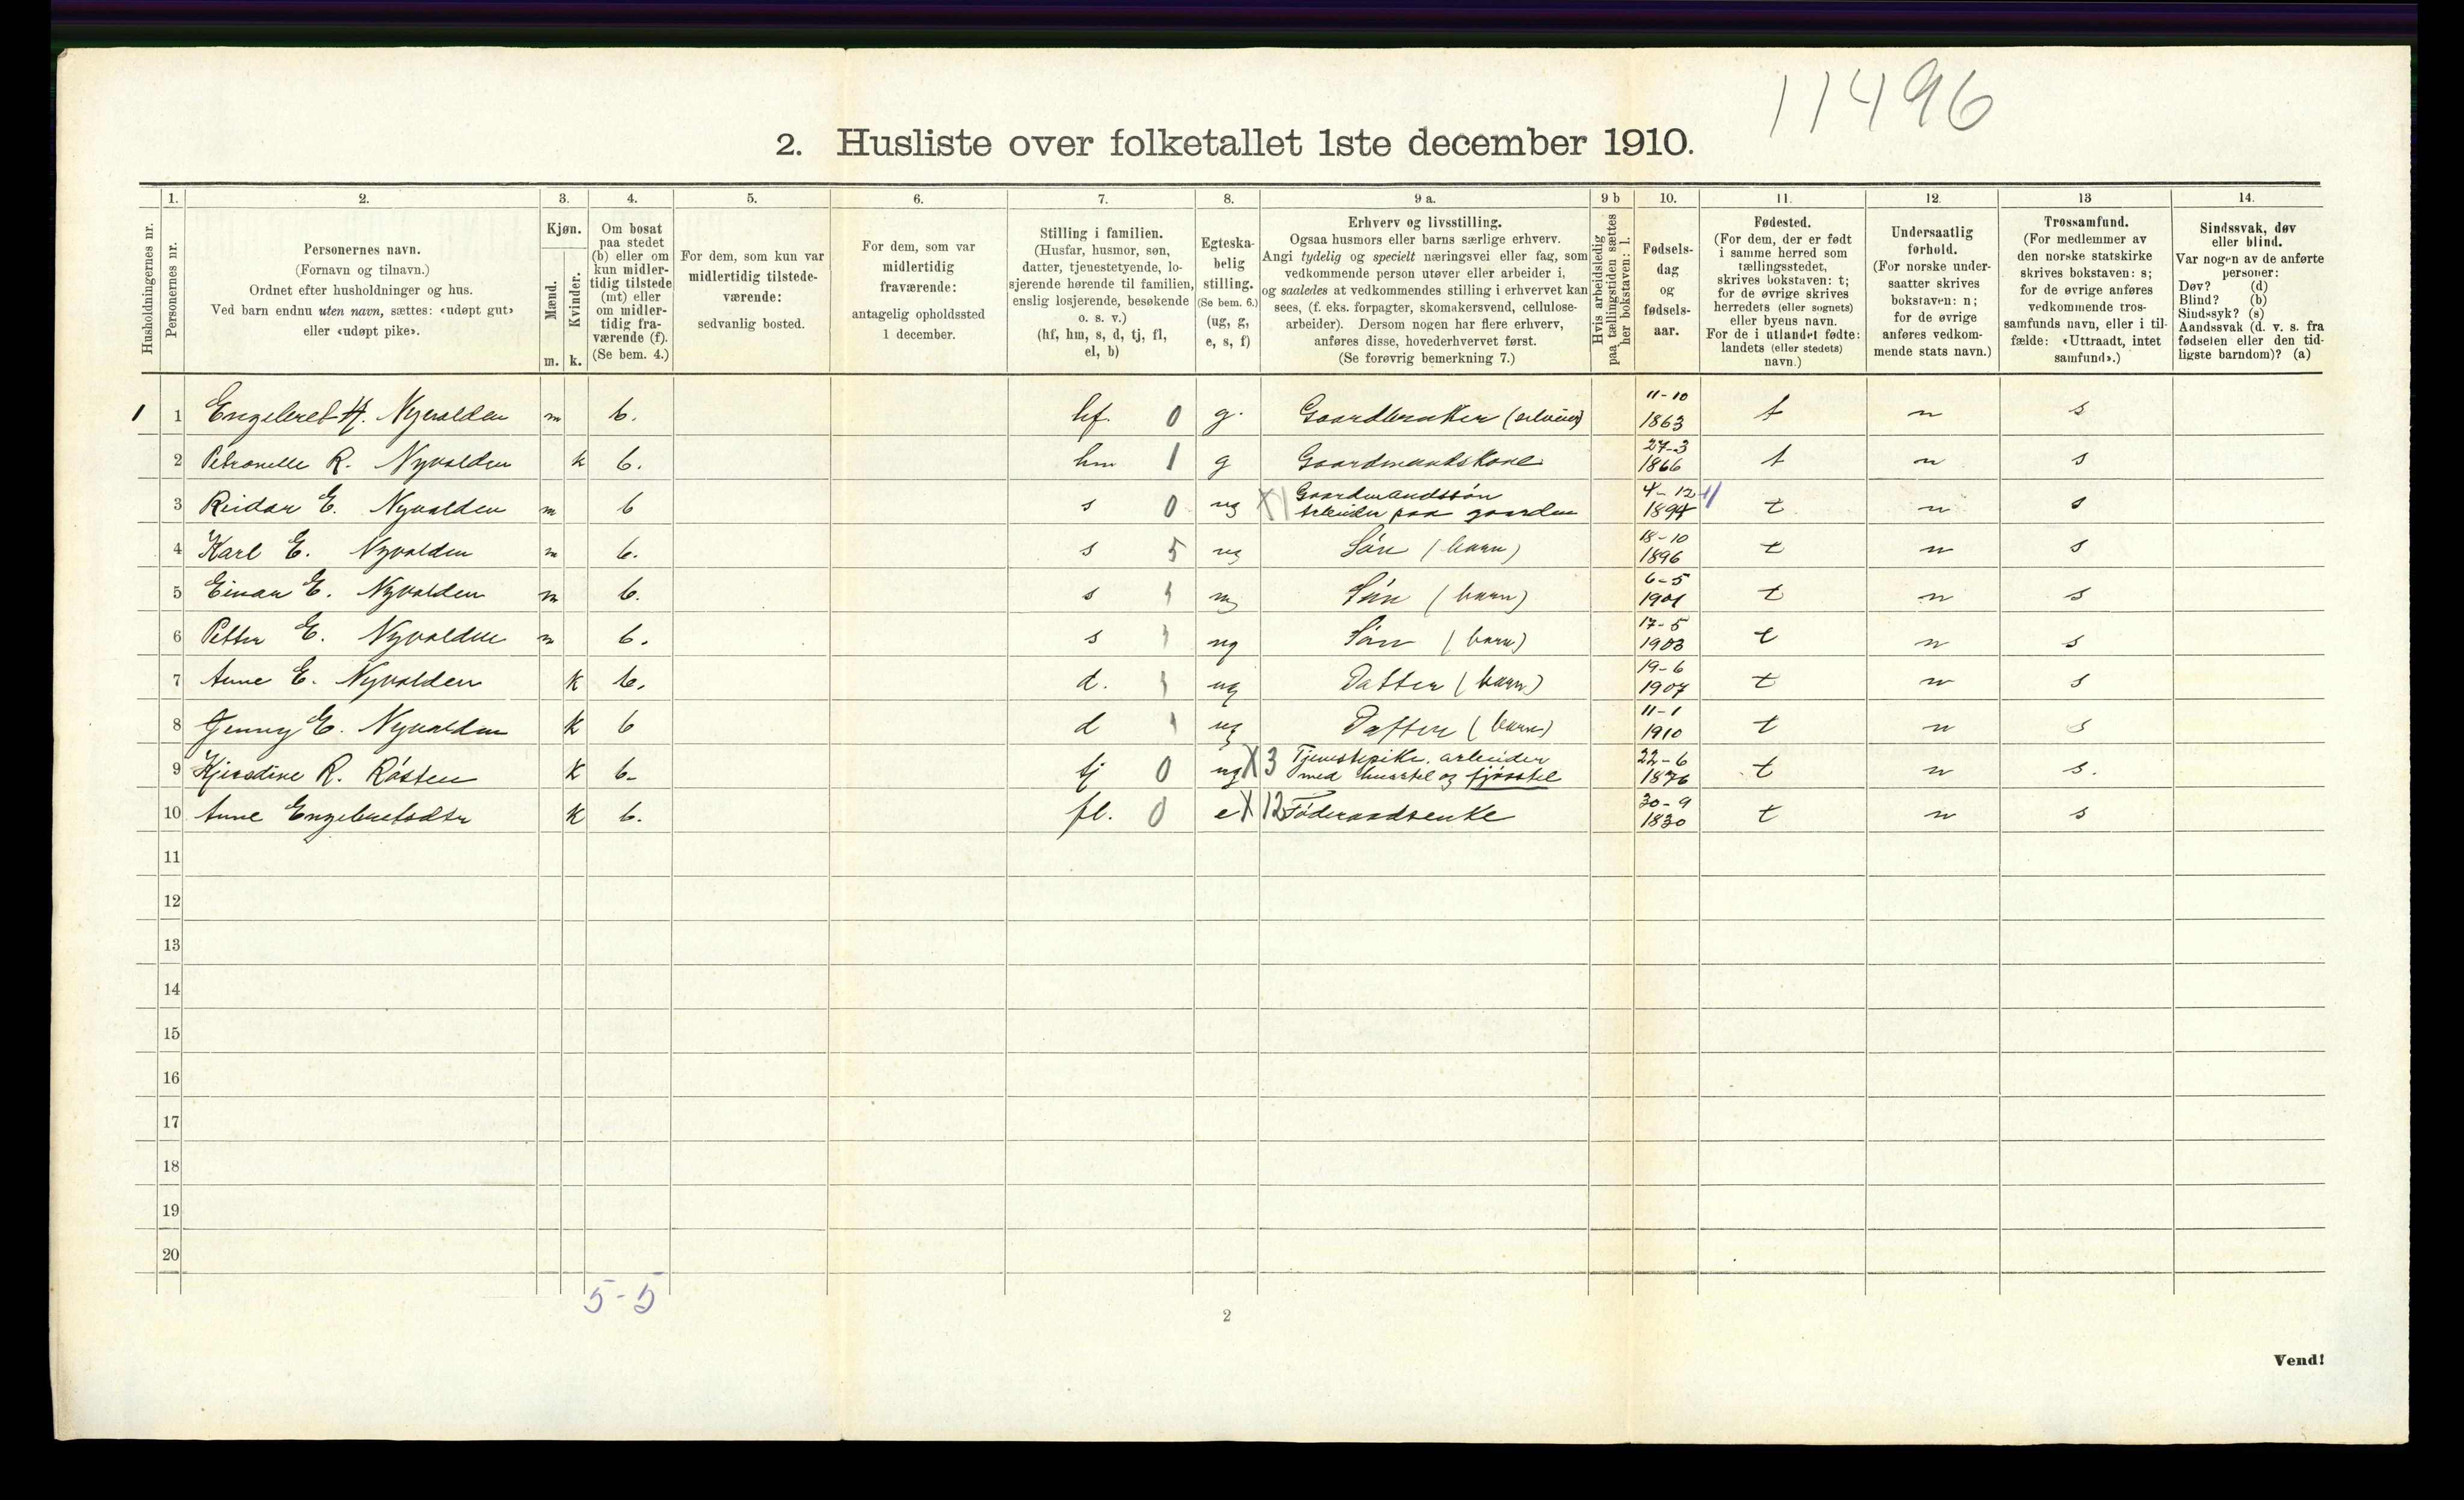 11496
2. Husliste over folketallet 1ste december 1910.
Husholdningernes nr.
1.
Personernes nr.
2.
Personernes navn.
(Fornavn og tilnavn.)
Ordnet efter husholdninger og hus.
Ved barn endnu uten navn, sættes: «udøpt gut»
eller «udøpt pike».
3.
Kjøn.
Mænd.
Kvinder.
m. k.
4.
Om bosat
paa stedet
(b) eller om
kun midler-
tidig tilstede
(mt) eller
om midler-
tidig fra-
værende (f).
(Se bem. 4.)
5.
For dem, som kun var
midlertidig tilstede-
værende:
sedvanlig bosted.
6.
For dem, som var
midlertidig
fraværende:
antagelig opholdssted
1 december.
7.
Stilling i familien.
(Husfar, husmor, søn,
datter, tjenestetyende, lo-
sjerende hørende til familien,
enslig losjerende, besøkende
o. s. v.)
(hf, hm, s, d, tj, fl,
el, b)
8.
Egteska-
belig
stilling.
(Se bem. 6.)
(ug, g,
e, s, f)
9 a.
Erhverv og livsstilling.
Ogsaa husmors eller barns særlige erhverv.
Angi tydelig og specielt næringsvei eller fag, som
vedkommende person utøver eller arbeider i,
og saaledes at vedkommendes stilling i erhvervet kan
sees, (f. eks. forpagter, skomakersvend, cellulose-
arbeider). Dersom nogen har flere erhverv,
anføres disse, hovederhvervet først.
(Se forøvrig bemerkning 7.)
9 b
Hvis arbeidsledig
paa tællingstiden sættes
her bokstaven: l.
10.
Fødsels-
dag
og
fødsels-
aar.
11.
Fødested.
(For dem, der er født
i samme herred som
tællingsstedet,
skrives bokstaven: t;
for de øvrige skrives
herredets (eller sognets)
eller byens navn.
For de i utlandet fødte:
landets (eller stedets)
navn.)
12.
Undersaatlig
forhold.
(For norske under-
saatter skrives
bokstaven: n;
for de øvrige
anføres vedkom-
mende stats navn.)
13
Trossamfund.
(For medlemmer av
den norske statskirke
skrives bokstaven: s;
for de øvrige anføres
vedkommende tros-
samfunds navn, eller i til-
fælde: «Uttraadt, intet
samfund».)
14.
Sindssvak, døv
eller blind.
Var nogen av de anførte
personer:
Døv? (d)
Blind? (b)
Sindssyk? (s)
Aandssvak (d. v. s. fra
fødselen eller den tid-
ligste barndom)? (a)
1 1 Engebret H. Nyvolden m b. hf. 0 g. Gaardbruker (selveier) 11-10 1863 t n s
2 Petronelle R. Nyvolden k b. hm 1 g Gaardmandskone 27-3 1866 t n s
3 Reidar E. Nyvolden m b s 0 ug X1 Gaardmandssön
Arbeider paa gaarden 4-12 1894 t n s
4 Karl E. Nyvolden m b. s 5 ug Sön (barn) 18-10 1896 t n s
5 Einar E. Nyvolden m b. s ug Sön (barn) 6-5 1901 t n s
6 Petter E. Nyvolden m b. s ug Sön (barn) 17-5 1903 t n s
7 Anne E. Nyvolden k b. d. ug Datter (barn) 19-6 1907 t n s
8 Jenny E. Nyvolden k b d ug Datter (barn) 11-1 1910 t n s
9 R. Rösten k b. tj 0 ug X3 Tjenestepike, arbeider
med husstel og fjösstel 22-6 1876 t n s.
10 Anne Engebretsdtr k b. fl. 0 e X12 Föderaadsenke 30-9 1830 t n s
11
12
13
14
15
16
17
18
19
20
5-5
2
Vend!